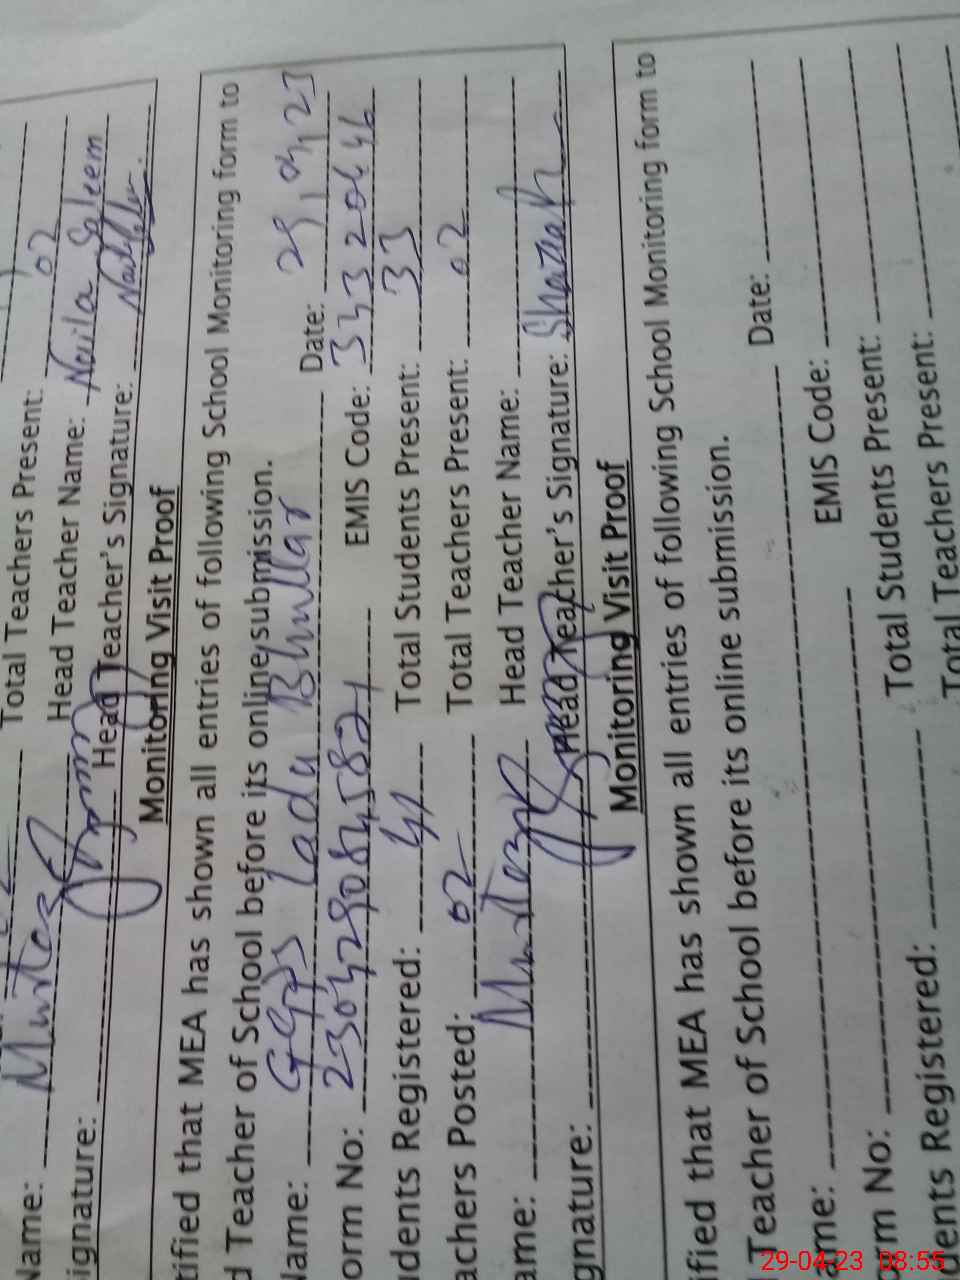 Total Teachers Present: 02
Name: Murtaza Head Teacher Name: Naila Saleem
ignature: Head Teacher's Signature:
Monitoring Visit Proof
tified that MEA has shown all entries of following School Monitoring form to
d Teacher of School before its online submission.
Name: GGPS Ladu Bhullar Date: 29,04,23
orm No: EMIS Code: 33320646
udents Registered: 41 Total Students Present: 33
achers Posted: 02 Total Teachers Present: 02
ame: Murtaza Head Teacher Name:
gnature: Head Teacher's Signature: Shazah
Monitoring Visit Proof
ified that MEA has shown all entries of following School Monitoring form to
Teacher of School before its online submission.
ame: Date:
rm No: EMIS Code:
dents Registered: Total Students Present:
Total Teachers Present:
29-04-23 08:55